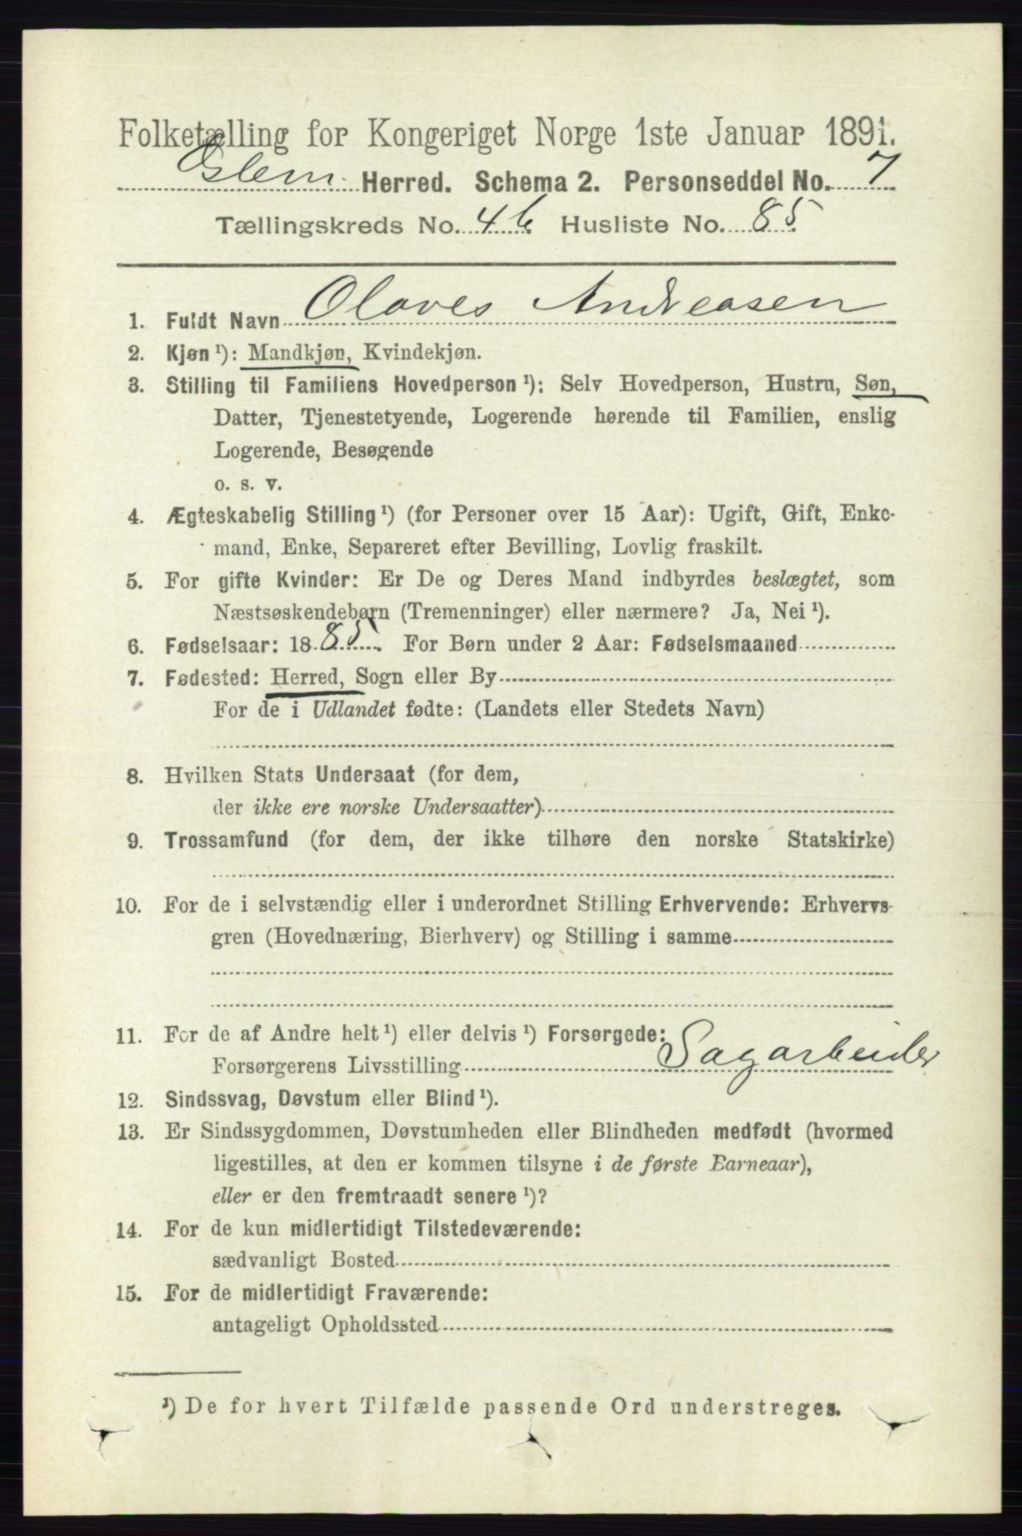 Folketælling for Kongeriget Norge 1ste Januar 1891.
Glem Herred. Schema 2. Personseddel No. 7
Tællingskreds No. 4 b Husliste No. 85
1. Fuldt Navn Olaves Andreasen
2. Kjøn ¹): Mandkjøn, Kvindekjøn.
3. Stilling til Familiens Hovedperson ¹): Selv Hovedperson, Hustru, Søn,
Datter, Tjenestetyende, Logerende hørende til Familien, enslig
Logerende, Besøgende
o. s. v.
4. Ægteskabelig Stilling ¹) (for Personer over 15 Aar): Ugift, Gift, Enke-
mand, Enke, Separeret efter Bevilling, Lovlig fraskilt.
5. For gifte Kvinder: Er De og Deres Mand indbyrdes beslægtet, som
Næstsøskendebørn (Tremenninger) eller nærmere? Ja, Nei ¹).
6. Fødselsaar: 1885. For Børn under 2 Aar: Fødselsmaaned
7. Fødested: Herred, Sogn eller By
For de i Udlandet fødte: (Landets eller Stedets Navn)
8. Hvilken Stats Undersaat (for dem,
der ikke ere norske Undersaatter)
9. Trossamfund (for dem, der ikke tilhøre den norske Statskirke)
10. For de i selvstændig eller i underordnet Stilling Erhvervende: Erhvervs-
gren (Hovednæring, Bierhverv) og Stilling i samme
11. For de af Andre helt ¹) eller delvis ¹) Forsørgede:
Forsørgerens Livsstilling Sagarbeider
12. Sindssvag, Døvstum eller Blind ¹).
13. Er Sindssygdommen, Døvstumheden eller Blindheden medfødt (hvormed
ligestilles, at den er kommen tilsyne i de første Barneaar),
eller er den fremtraadt senere ¹)?
14. For de kun midlertidigt Tilstedeværende:
sædvanligt Bosted
15. For de midlertidigt Fraværende:
antageligt Opholdssted
¹) De for hvert Tilfælde passende Ord understreges.